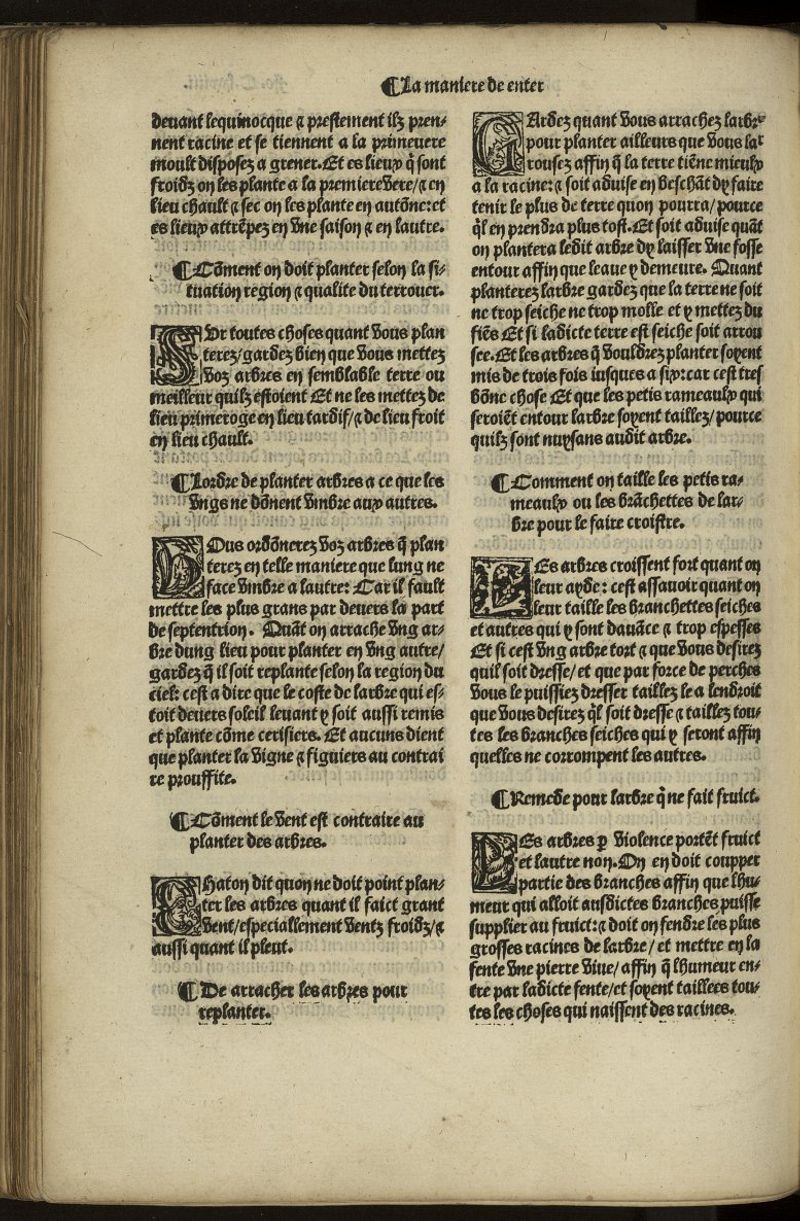 ¶La maniere de enter
deuant lequinocque ⁊ prestement ilz pren⸗
nent racine et se tiennent a la primeuere
moult disposez a grener. Et es lieux q̄ sont
froidz on les plante a la premiere vere/⁊ en
lieu chault ⁊ sec on les plante en autōne: et
es lieux attrēpez en vne saison ⁊ en lautre.
¶Cōment on doit planter selon la si⸗
tuation region ⁊ qualite du terrouer.
SVr toutes choses quant vous plan
terez/gardez bien que vous mettez
voz arbres en semblable terre ou
meilleur quilz estoient Et ne les mettez de
lieu primeroge en lieu tardif/⁊ de lieu froit
en lieu chault.
¶Lordre de planter arbres a ce que les
vngs ne dōnent vmbre aux autres.
VOus ordōnerez voz arbres q̄ plan
terez en telle maniere que lung ne
face vmbre a lautre: Car il fault
mettre les plus grans par deuers la part
de septentrion. Quāt on arrache vng ar⸗
bre dung lieu pour planter en vng autre/
gardez q̄ il soit replante selon la region du
ciel: cest a dire que le coste de larbre qui es⸗
toit deuers soleil leuant y soit aussi remis
et plante cōme cerisiers. Et aucuns dient
que planter la vigne ⁊ figuiers au contrai
re prouffite.
¶Cōment le vent est contraire au
planter des arbres.
CHaton dit quon ne doit point plan⸗
ter les arbres quant il faict grant
vent/especiallement ventz froidz/⁊
aussi quant il pleut.
¶De arracher les arbres pour
replanter.
GArdez quant vous arrachez larbre
pour planter ailleurs que vous lar
rousez affin q̄ la terre tiēne mieulx
a la racine: ⁊ soit aduise en beschāt dy faire
tenir le plus de terre quon pourra/pource
q̄l en prendra plus tost. Et soit aduise quāt
on plantera ledit arbre dy laisser vne fosse
entour affin que leaue y demeure. Quant
planterez larbre gardez que la terre ne soit
ne trop seiche ne trop molle et y mettez du
fiēs Et si ladicte terre est seiche soit arrou
see. Et les arbres q̄ vouldrez planter soyent
mis de trois fois iusques a six: car cest tres
bōne chose Et que les petis rameaulx qui
seroiēt entour larbre soyent taillez/pource
quilz sont nuysans audit arbre.
¶Comment on taille les petis ra⸗
meaulx ou les brāchettes de lar⸗
bre pour le faire croistre.
LEs arbres croissent fort quant on
leur ayde: cest assauoir quant on
leur taille les branchettes seiches
et autres qui y sont dauāce ⁊ trop espesses
Et si cest vng arbre tort ⁊ que vous desirez
quil soit dresse/et que par force de perches
vous le puissiez dresser taillez le a lendroit
que vous desirez q̄l soit dresse ⁊ taillez tou⸗
tes les branches seiches qui y seront affin
quelles ne corrompent les autres.
¶Remede pour larbre q̄ ne fait fruict.
LEs arbres ꝑ violence portēt fruict
et lautre non. On en doit coupper
partie des branches affin que lhu⸗
meur qui alloit ausdictes branches puisse
supplier au fruict: ⁊ doit on fendre les plus
grosses racines de larbre/ et mettre en la
fente vne pierre viue/ affin q̄ lhumeur en⸗
tre par ladicte fente/et soyent taillees tou⸗
tes les choses qui naissent des racines.